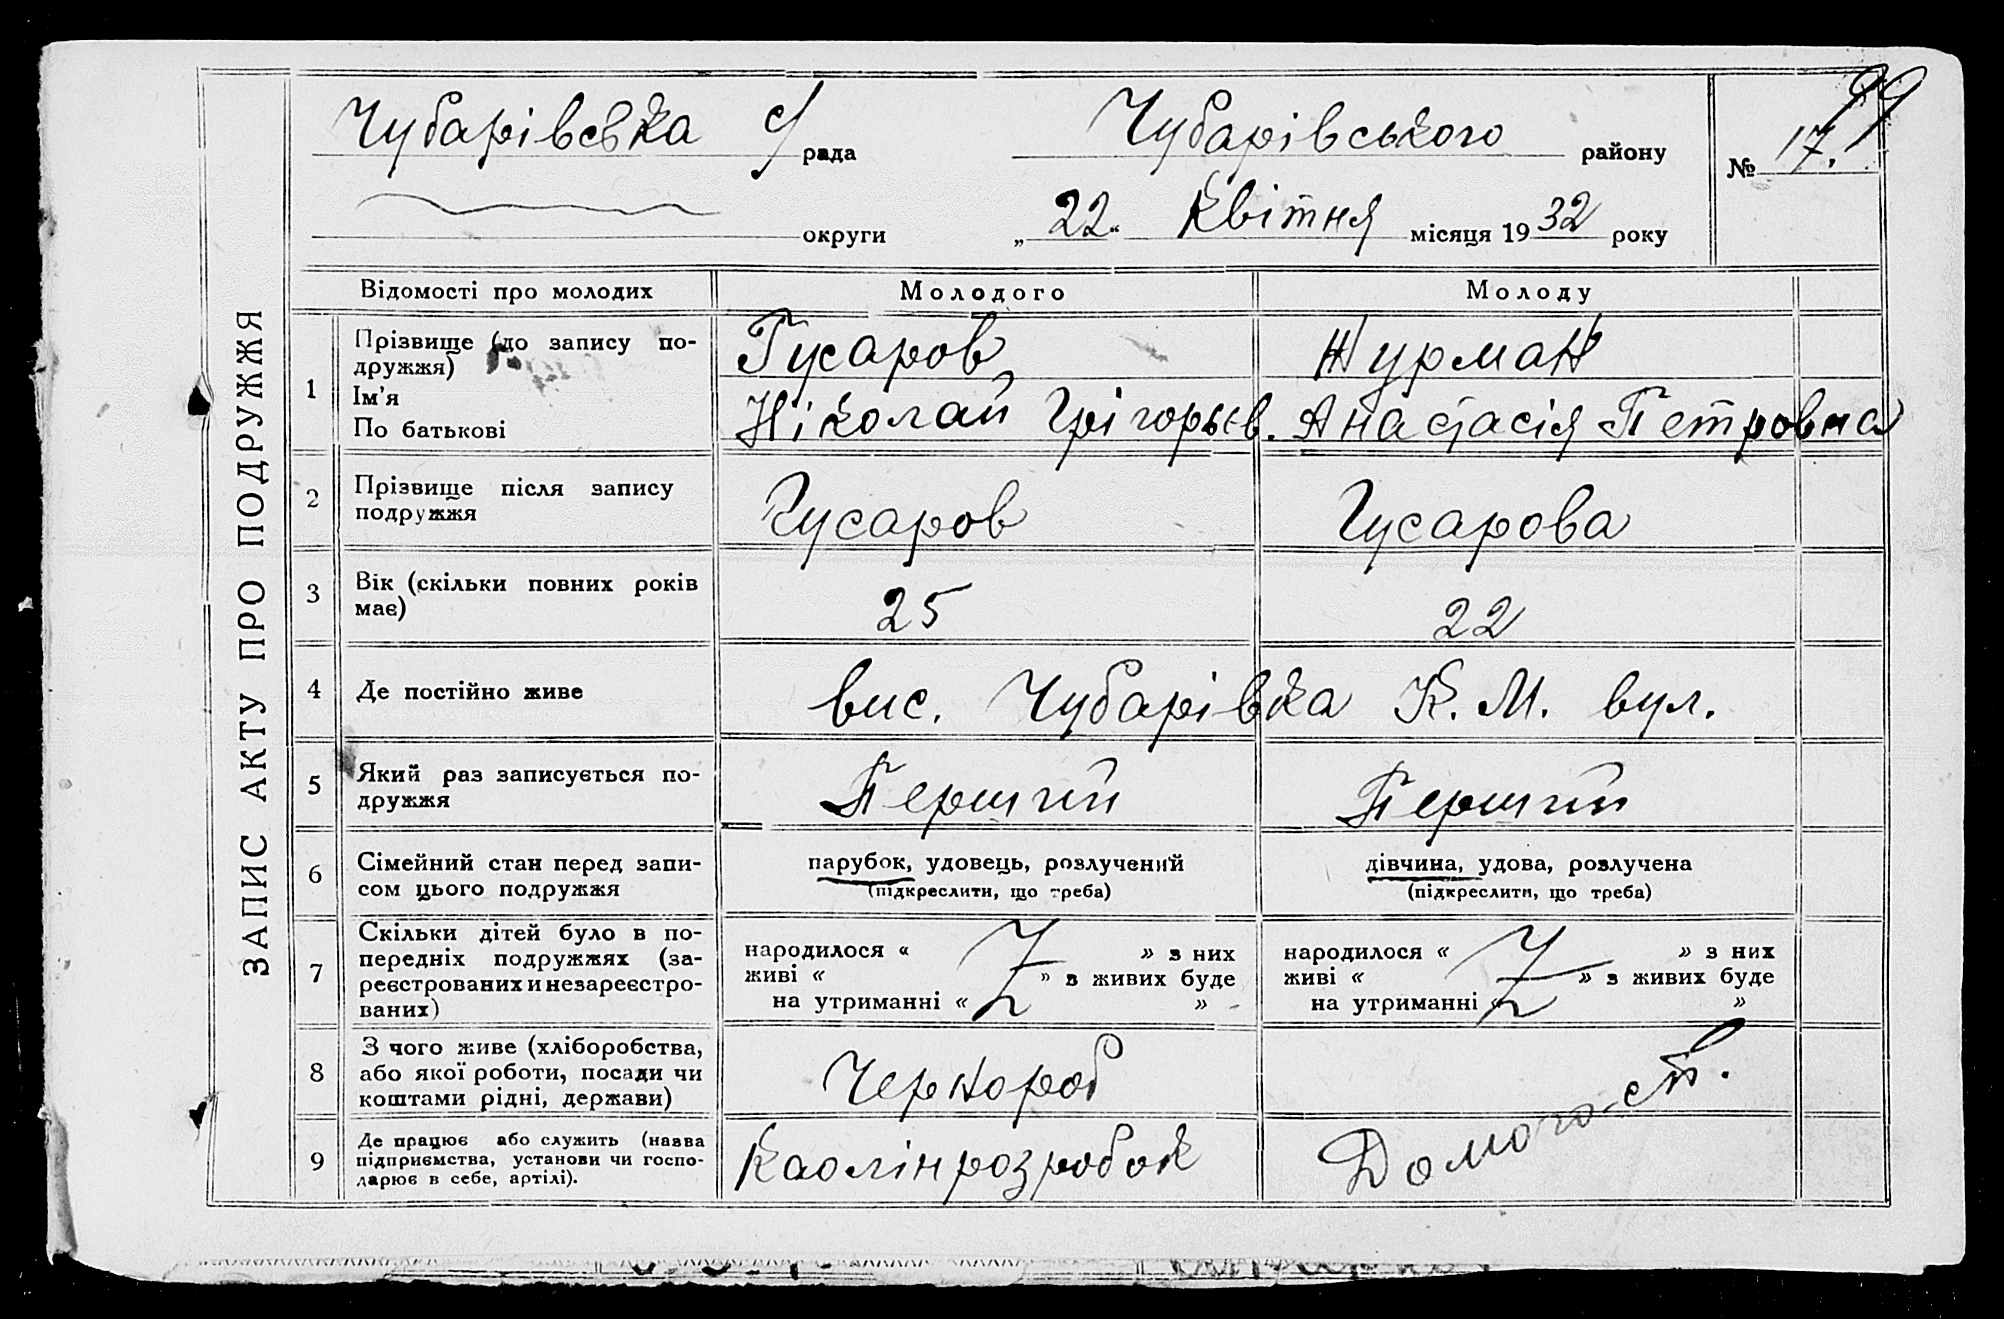 ЗАПИС АКТУ ПРО ПОДРУЖЖЯ
99
Чубарівська с/рада Чубарівського району № 17.
округи „22“ Квітня місяця 1932 року
Відомості про молодих Молодого Молоду
1 Прізвище (до запису по-
дружжя) Гусаров Журман
Ім'я
По батькові Ніколай Грігорьєв. Анастасія Петровна
2 Прізвище після запису
подружжя Гусаров Гусарова
3 Вік (скільки повних років
має) 25 22
4 Де постійно живе вис. Чубарівка К. М. вул.
5 Який раз записується по-
дружжя Перший Перший
6 Сімейний стан перед запи-
сом цього подружжя парубок, удовець, розлучений дівчина, удова, розлучена
(підкреслити, що треба) (підкреслити, що треба)
7 Скільки дітей було в по-
передніх подружжях (за-
реєстрованих и незареєстро-
ваних)
народилося « » з них народилося « » з них
живі « » з живих буде живі « » з живих буде
на утриманні « » на утриманні « »
8 З чого живе (хліборобства,
або якої роботи, посади чи
коштами рідні, держави) Чернороб
9 Де працює або служить (назва
підприємства, установи чи госпо-
дарює в себе, артілі). Каолінрозробок Домого-ст.